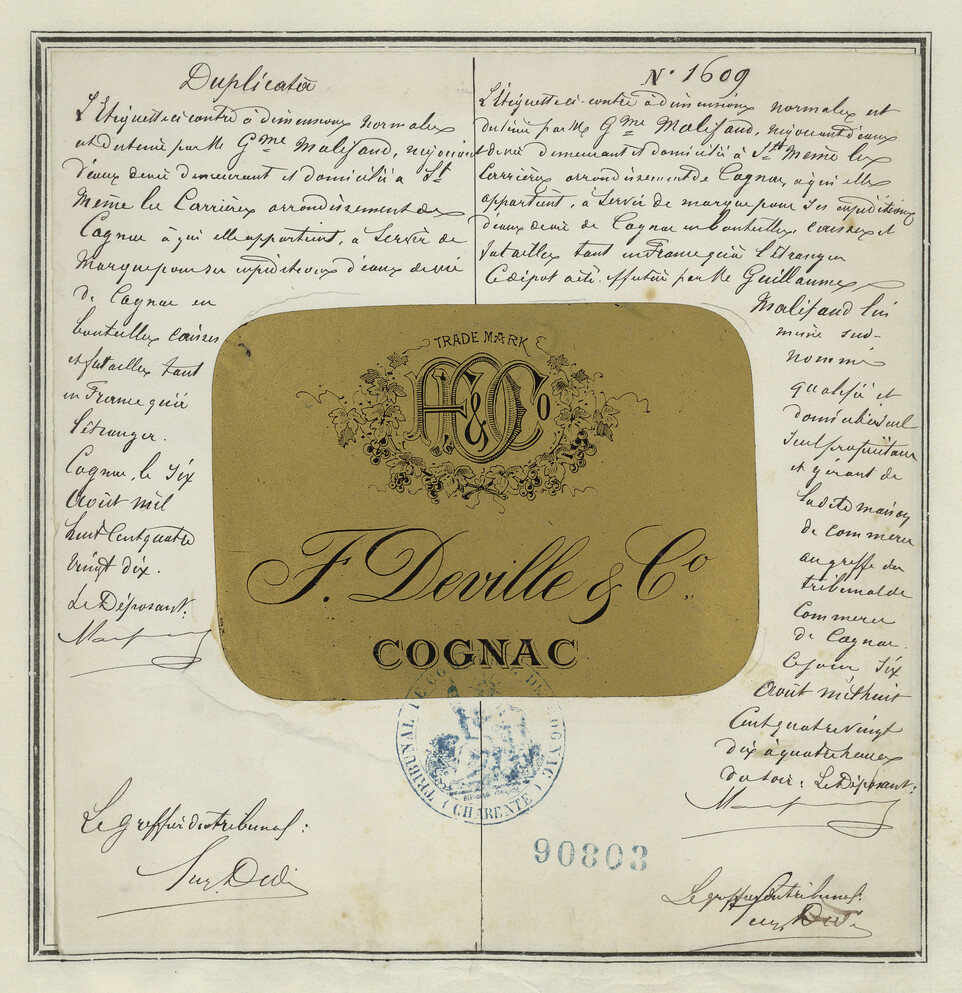 Duplicata
L'Etiquette ci contre à dimensions normales
et destinée par Mr Gme Malifaud, négociant
d'eaux de vie demeurant et domicilié à St
Meme les Carrières arrondissement de
Cognac à qui elle appartient, à Servir de
Marque pour ses expéditions d'eaux de vie
de Cognac en
bouteilles caisses
et futailles tant
en France qu'à
l'étranger.
Cognac, le Six
Août mil
huit Cent quatre
Vingt dix.
Le Déposant:
Le greffier du tribunal:
N° 1609
L'Etiquette ci-contre à dimensions normales est
destinée par Mr Gme Malifaud, négociant d'eaux
de vie demeurant et domicilié à St Meme les
Carrières arrondissement de Cognac, à qui elle
appartient, à Servir de marque pour ses expéditions
d'eaux de vie de Cognac en bouteilles caisses et
futailles tant en France qu'à l'étranger
Ce dépôt a été effectué par Mr Guillaume
Malifaud lui
même sus-
nommé
qualifié et
domicilié seul
Seul propriétaire
et gérant de
la dite maison
de commerce
au greffe du
tribunal de
Commerce
de Cognac.
Ce jour Six
Août mil huit
Cent quatre vingt
dix à quatre heures
du soir: Le Déposant:
Le greffier du tribunal:
TRADE MARK
& Co
F. Deville & Co.
COGNAC
TRIBUNAL DE COMMERCE DE COGNAC
(CHARENTE)
90803